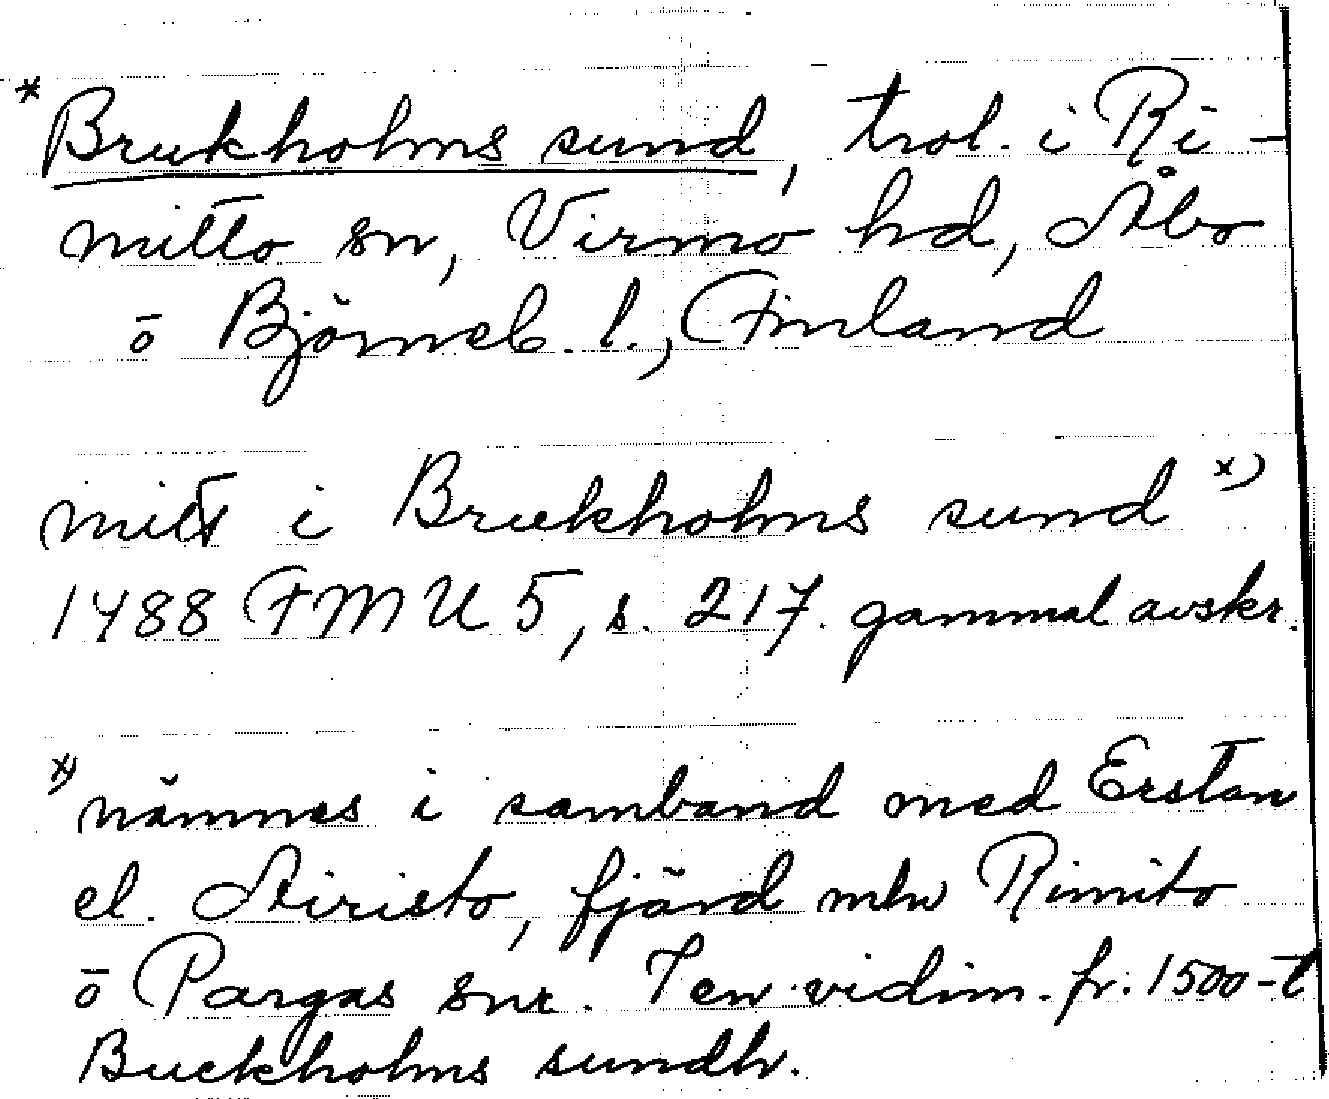 * Brukholms sund, trol. i Ri-
mitto sn, Virmo hd, Åbo
o Björneb. l., Finland
mitt i Brukholms sund x)
1488 FMU 5, s. 217. gammal avskr.
x) nämnes i samband med Erstan
el. Airisto, fjärd mln Rimito
o Pargas snr. I en vidim. fr. 1500-t
Buckholms sundh.